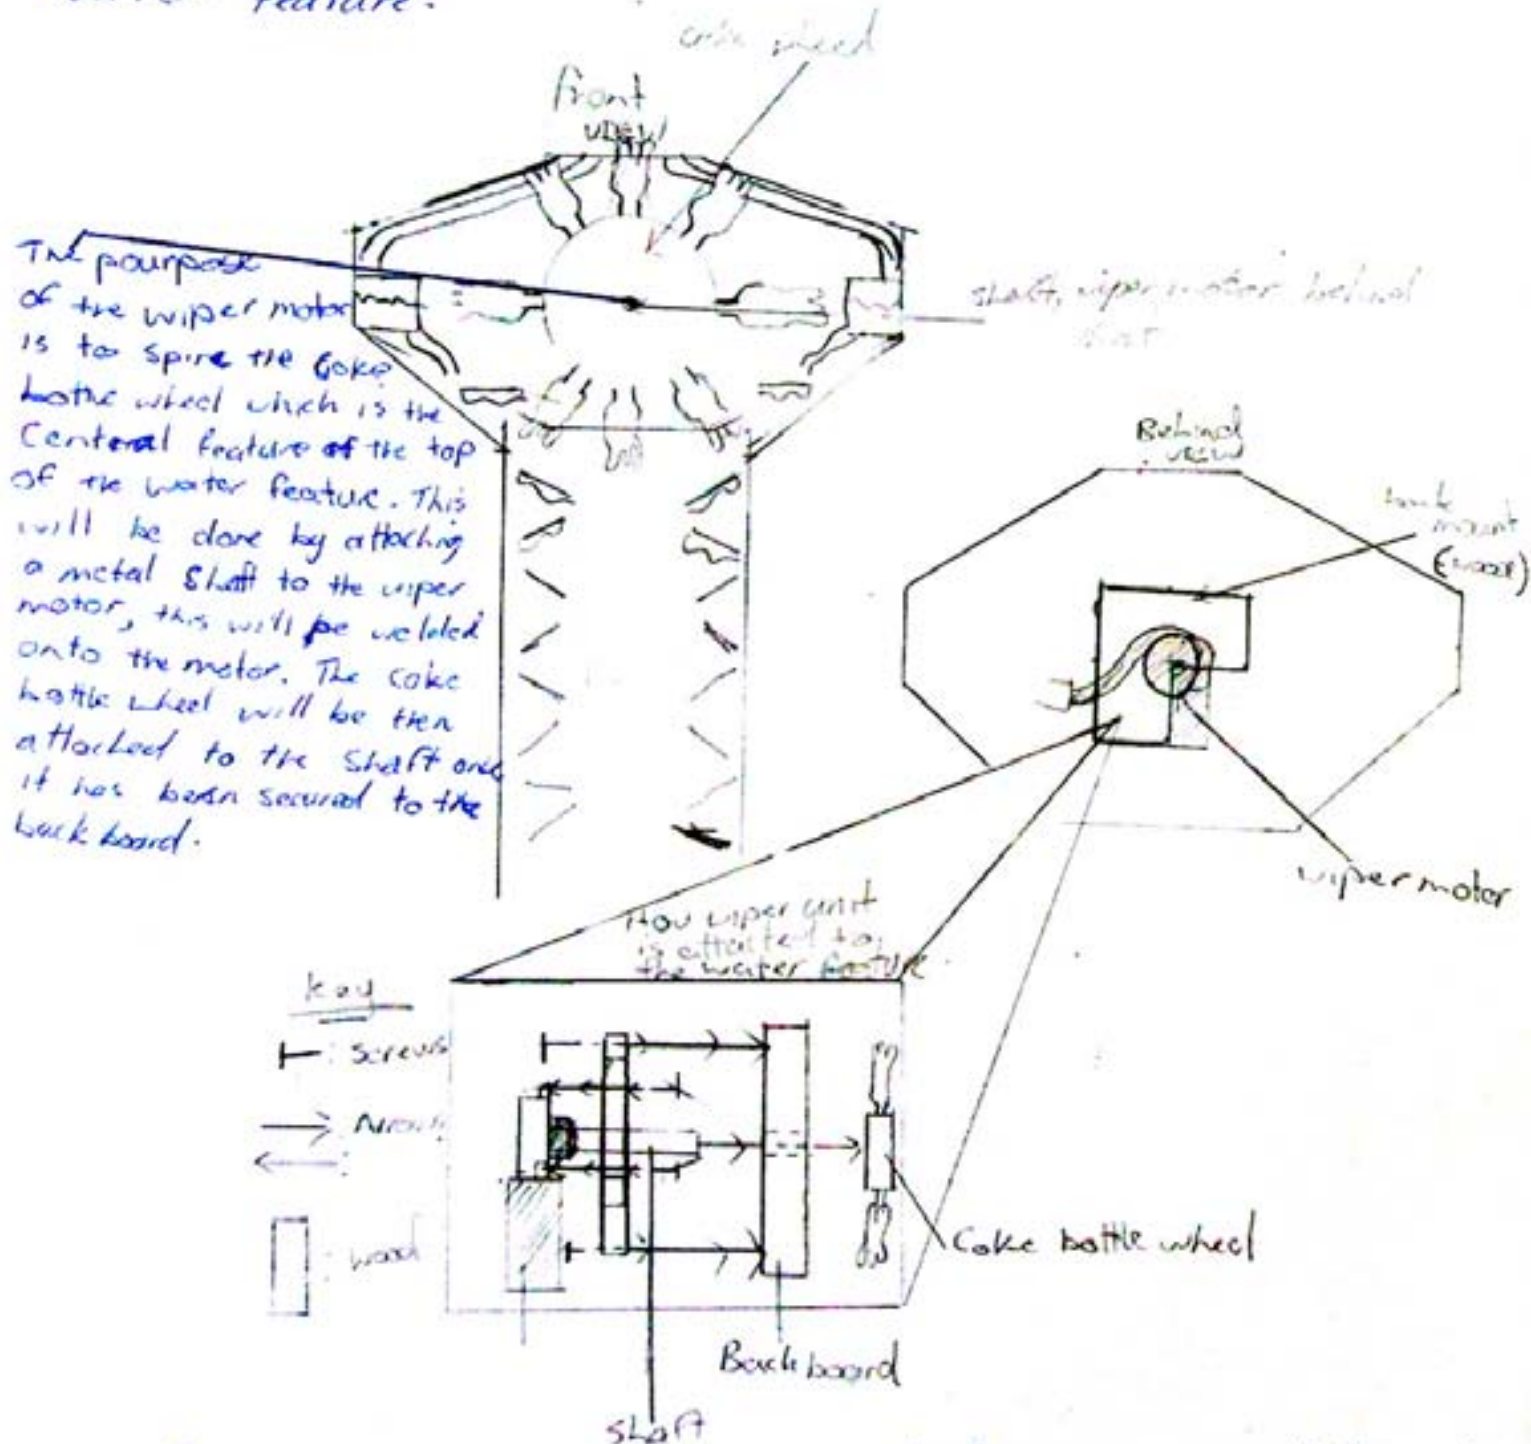 feature.
wheel
front
view
The pourpose
of the wiper motor
is to spire the Coke
bottle wheel which is the
Centeral feature of the top
of the water feature. This
will be done by attaching
a metal shaft to the wiper
motor, this will be welded
onto the motor. The coke
bottle wheel will be then
attached to the shaft once
it has been secured to the
back board.
shaft, wiper motor behind
Behind
view
mount
(wood)
wiper motor
How wiper unit
is attatted to
the water feature
key
: Screws
: Arrows
: wood
Coke bottle wheel
Back board
shaft